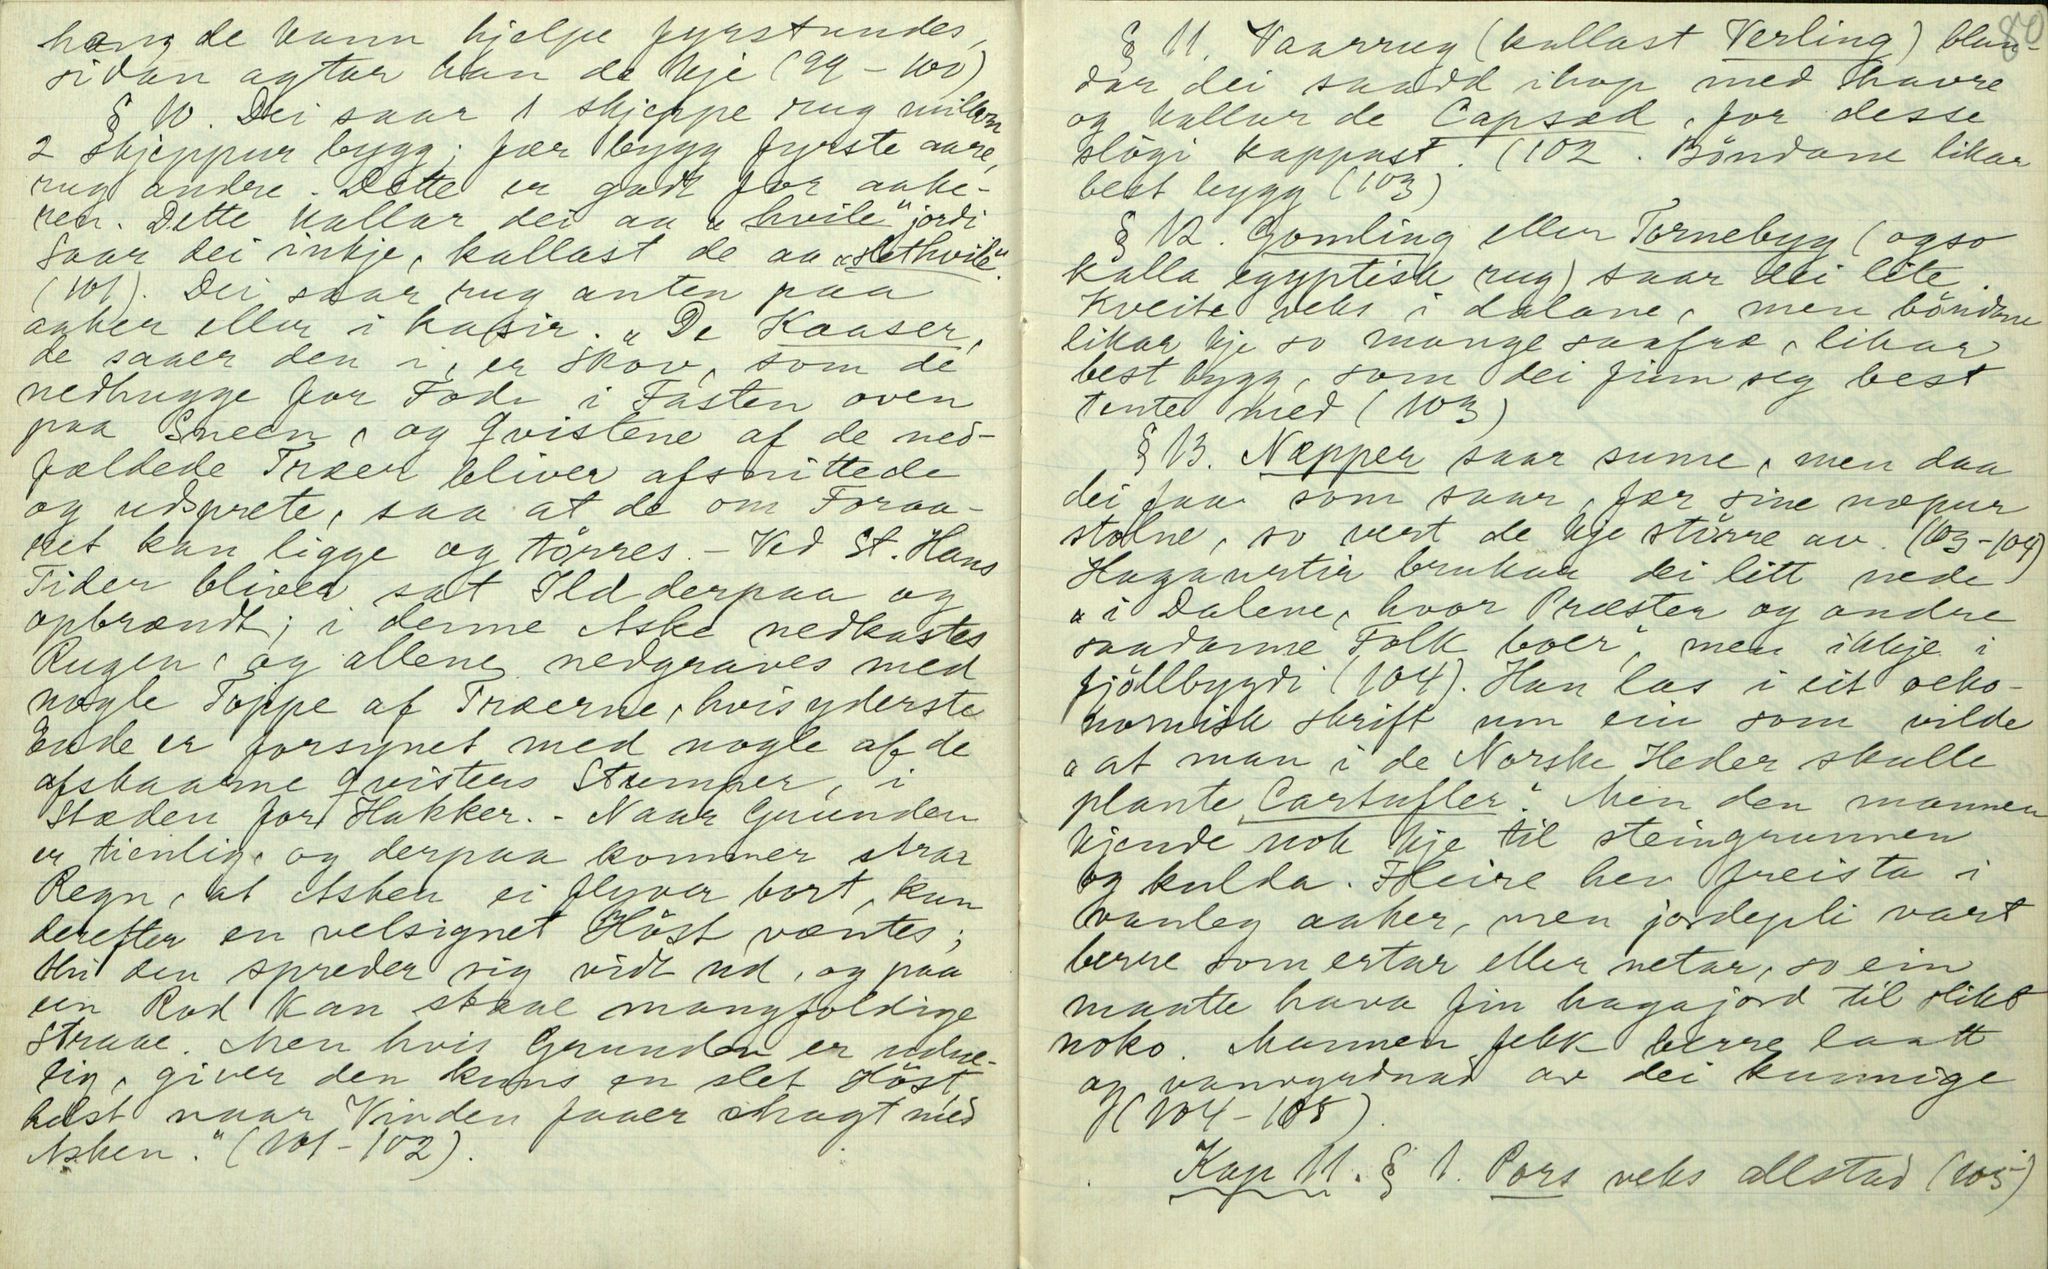 heng de kann hjelpe fyrstundes,
sidan agtar han de kje (99-100)
§ 10. Dei saar 1 skjeppe rug millom
2 skjeppur bygg; fær bygg fyrste aare,
rug andre. Dette er godt for aake-
ren. Dette kallar dei aa "hvile" jordi
Saar dei inkje, kallast de aa "slethvile"
(101). Dei saar rug anten paa
aaker eller i kaasir. "De Kaaser,
de saaer den i, er Skov, som de
nedhugge for Fode i Fasten oven
paa Sneen, og Qvistene af de ned-
fældede Træer bliver afsnittede
og udsprete, saa at de om Foraa-
ret kan ligge og törres. - Ved St. Hans
Tider bliver sat Ild derpaa og
opbrændt; i denne Aske nedkastes
Rugen, og allene nedgraves med
nogle Toppe af Træerne, hvis yderste
Ende er forsynet med nogle af de
afskaarne Qvisters Stumper, i
Stæden for Hakker. - Naar Grunden
er tienlig, og derpaa kommer strax
Regn, at Asken ei flyver bort, kan
derefter en velsignet Höst væntes;
thi den spreder sig vidt ud, og paa
een Rod kan staae mangfoldige
Straae. Men hvis Grunden er udue-
lig, giver den kuns en slet Höst,
helst naar Vinden faaer Magt med
Asken." (101-102).
80
§ 11. Vaarrug (kallast Verling) blan-
dar dei saadd ihop med havre
og kallar de Capsæd, for desse
slögi kappast. (102. Böndane likar
best bygg (103)
§ 12. Gomling eller Tornebyg (ogso
kalla egyptisk rug) saar dei lite.
Kveite veks i dalane, men böndane
likar kje so mange saafræ, likar
best bygg, som dei finn seg best
tente med (103)
§ 13. Næpper saar sume, men daa
dei faa som saar, fær sine næpur
stolne, so vert de kje större av. (103-104)
Hagaurtir brukar dei litt nede
"i Dalene, hvor Præster og andre
saadanne Folk boer", men ikkje i
fjöllbygdi (104). Han las i eit oeko-
nomisk skrift um ein som vilde
"at man i de Norske Heder skulle
plante Cartufler". Men den mannen
kjende nok kje til steingrunnen
og kulda. Fleire hev freista i
vanleg aaker, men jordepli vart
berre som ertar eller netar, so ein
maatte hava fin hagajord til slikt
noko. Mannen fekk berre laatt
og vanvyrdnad av dei kunnige
(104-105).
Kap 11. § 1. Pors veks allstad (105)